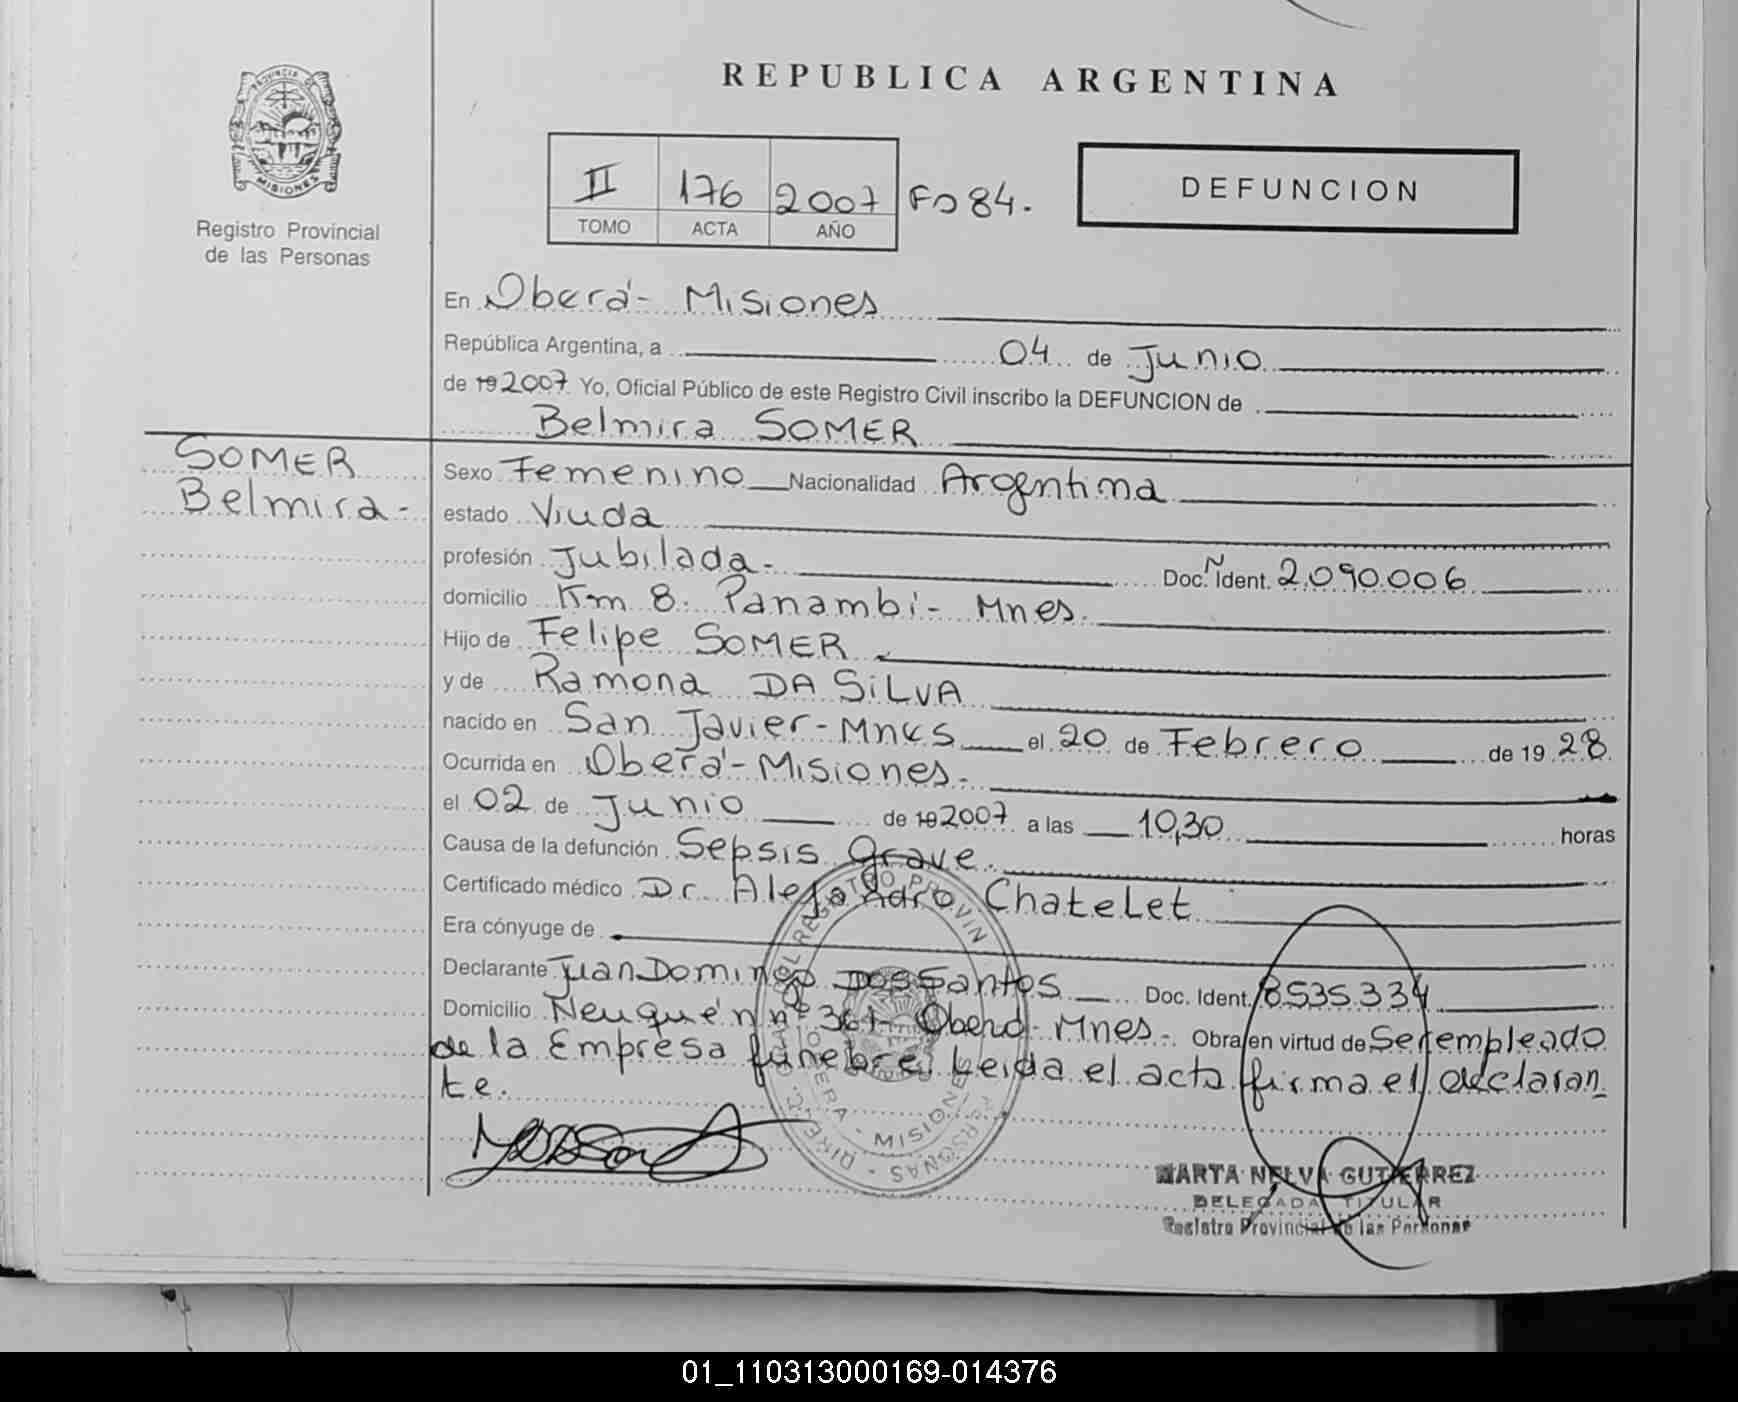 REPUBLICA ARGENTINA
PROVINCIA DE
MISIONES
Registro Provincial
de las Personas
II 176 2007 Fo 84.
TOMO ACTA AÑO
DEFUNCION
En Oberá- Misiones
República Argentina, a 04 de Junio
de 19 2007 Yo, Oficial Público de este Registro Civil inscribo la DEFUNCION de
Belmira SOMER
SOMER
Belmira-
Sexo Femenino Nacionalidad Argentina
estado Viuda
profesión Jubilada- Doc. N Ident. 2.090.006
domicilio Km 8. Panambí- Mnes.
Hijo de Felipe SOMER
y de Ramona DA SILVA
nacido en San Javier-Mnes el 20 de Febrero de 19 28
Ocurrida en Oberá-Misiones-
el 02 de Junio de 19 2007 a las 10,30 horas
Causa de la defunción Sepsis Grave.
Certificado médico Dr. Alejandro Chatelet
Era cónyuge de
Declarante Juan Domingo Dos Santos Doc. Ident. 8.535.334
Domicilio Neuquén nº 361- Oberá- Mnes.- Obra en virtud de Ser empleado
de la Empresa fúnebre. Leida el acta firma el declaran
te.
OBERA - MISIONES
MARTA NELVA GUTIERREZ
DELEGADA TITULAR
Registro Provincial de las Personas
01_110313000169-014376